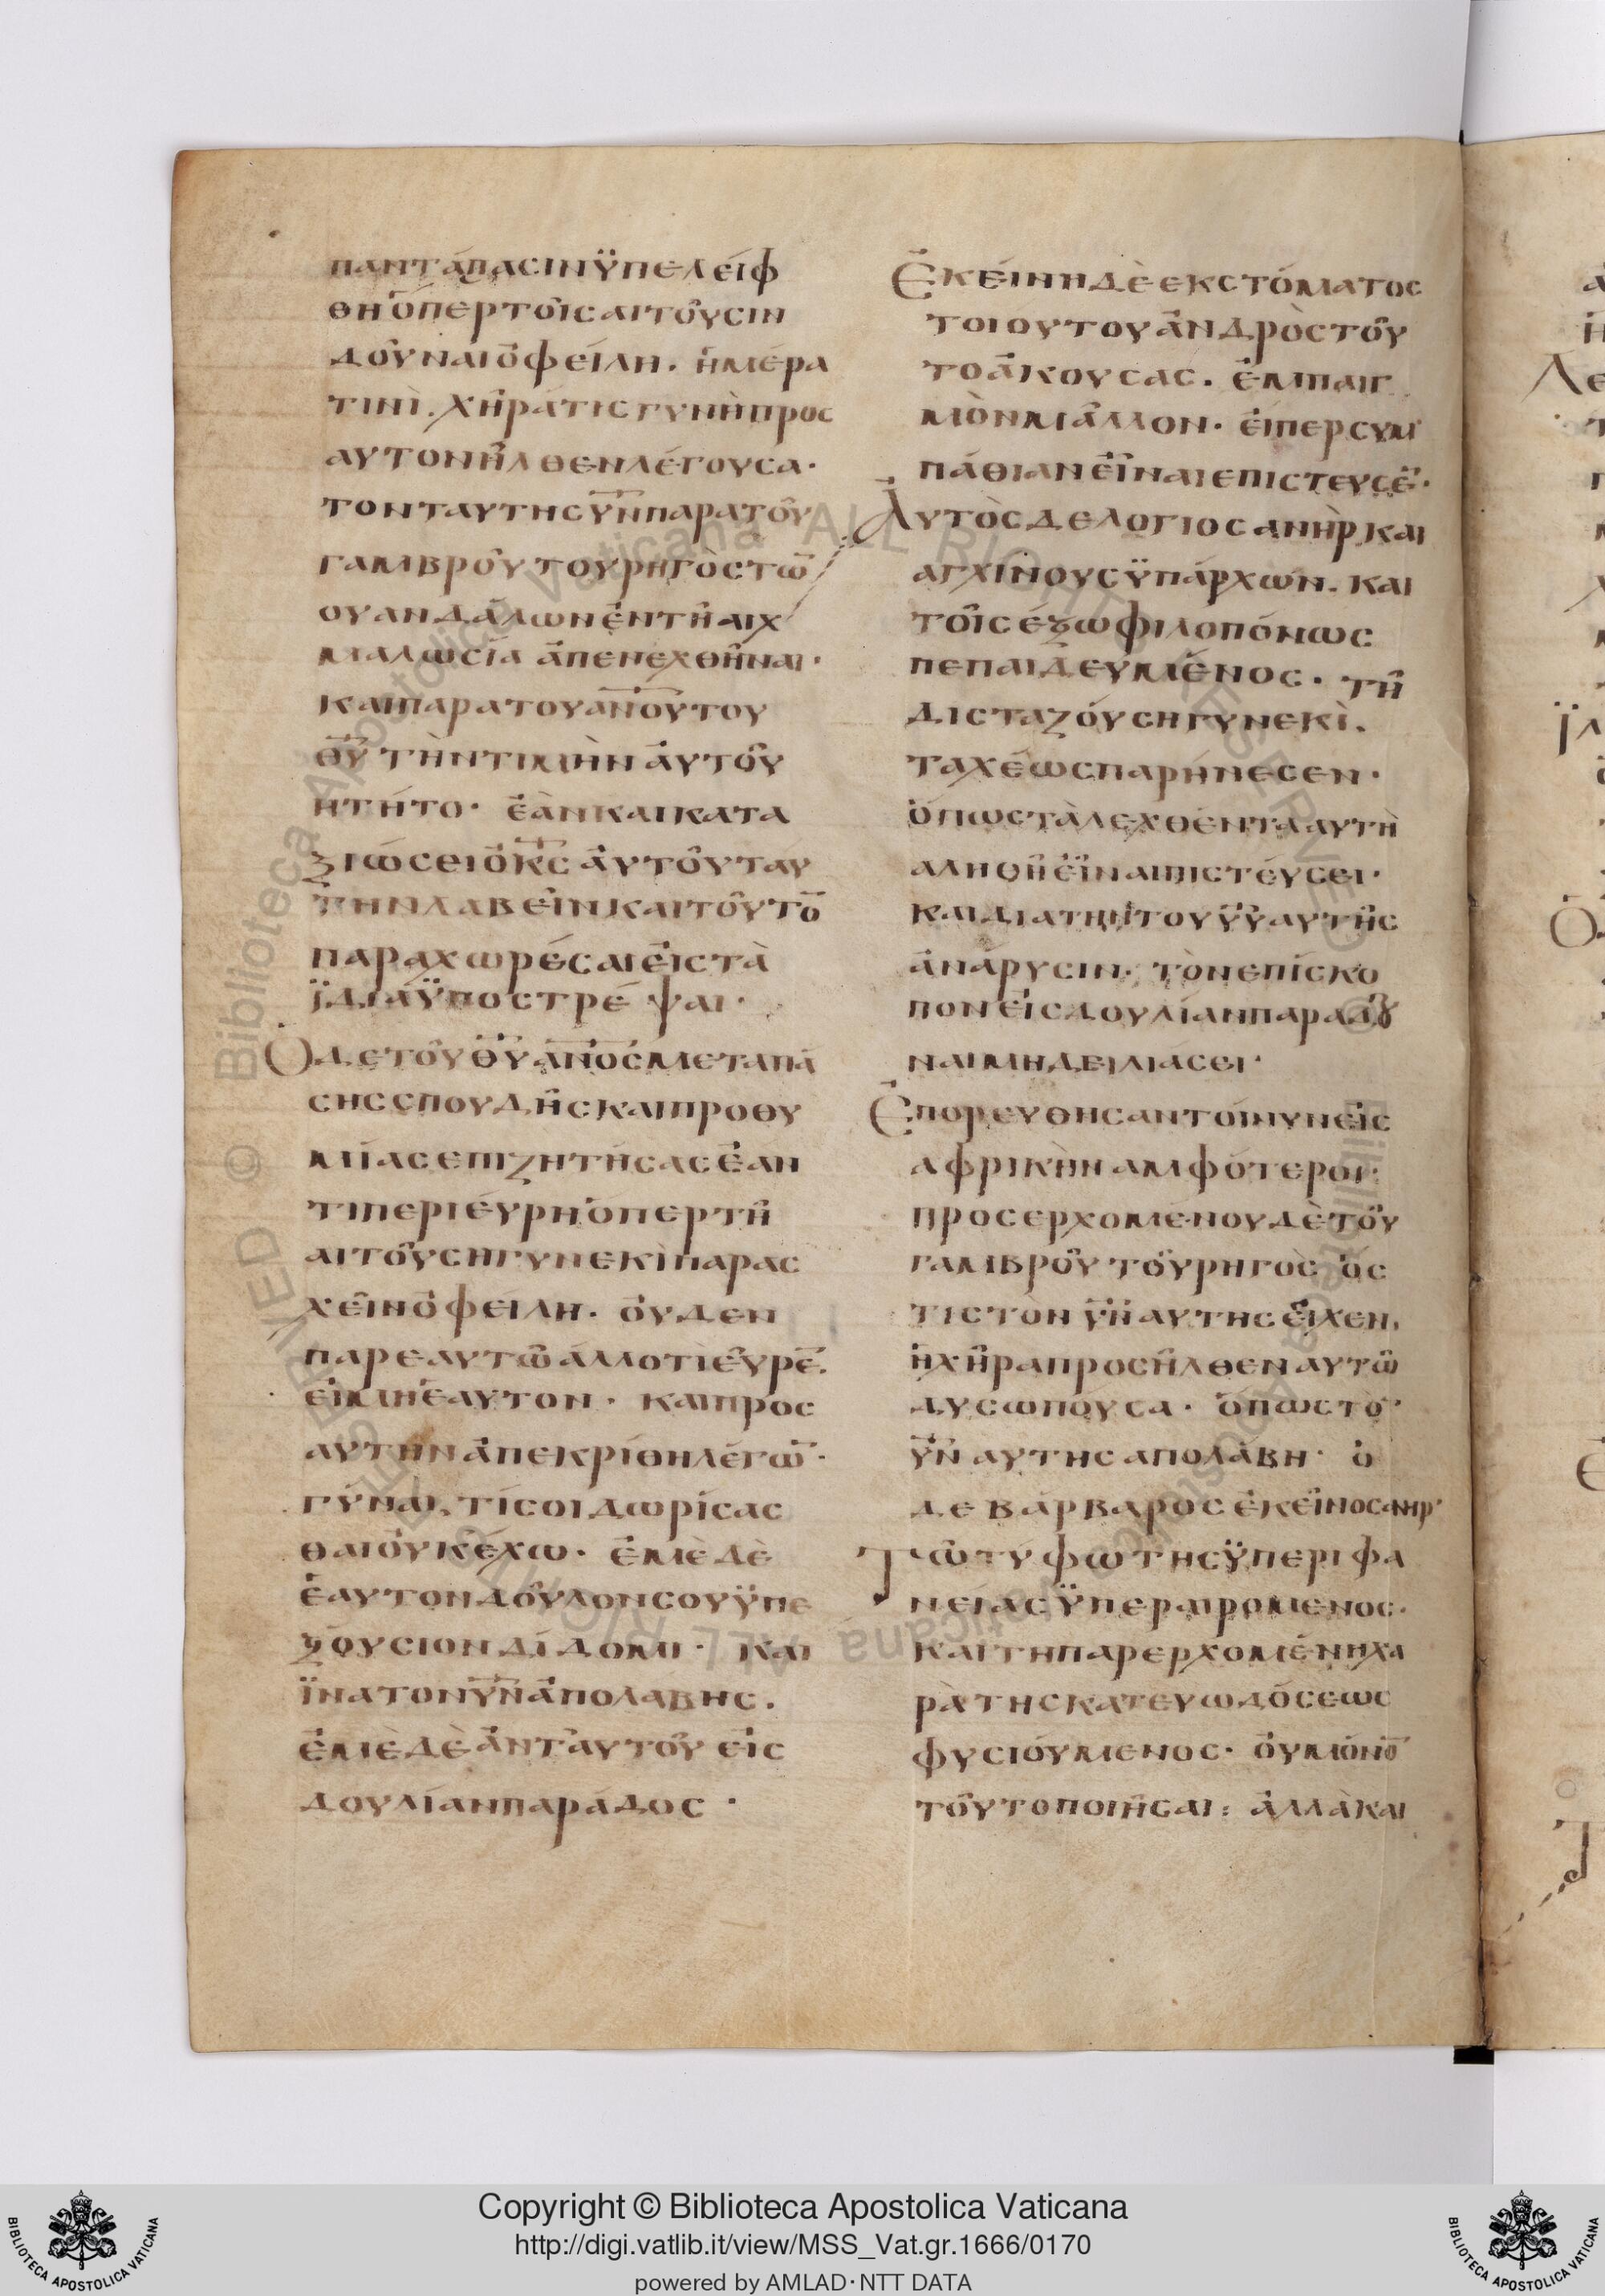 πανταπασινϋπελείφ
θηόπερτοῖςαιτοῦσιν
δοῦναιὀφείλη. ἡμέρα
τινὶ. χήράτιςγυνὴπρος
αυτονἦλθενλέγουσα·
τονταυτηςῡν̄παρατοῦ
γαμβροῦτουρηγὸςτῶ̄
ουανδάλωνἐντῆαιχ
μαλωσία ἀπενεχθῆναι·
καιπαρατουᾱν̄ο̄ῡτου
θ̄ῡ τὴντιμὴν ἀυτοῦ
ητήτο· ἐὰνκαικατα
ξιώσειὁκ̄ς̄ ἀυτοῦταύ
τηνλαβεῖνκαιτοῦτο̄
παραχωρέσαιεἰςτὰ
ϊδιαϋποστρέψαι·
Ὁδετοῦθ̄ῡᾱν̄ο̄ς̄μεταπά
σηςσπουδῆςκαιπροθυ
μίαςεπιζητήσαςἐὰν
τιπεριέυρηόπερτῆ
αιτοῦσηγυνεκὶπαρασ
χεῖνὀφειλη. ὀυδεν
παρεαυτῶάλλοτιεὗρε̄.
εἰμηἑαυτον· καιπρος
αυτηνἀπεκρίθηλέγω̄·
γύναι, τίσοιδωρίσασ
θαιὀυκέχω· ἐμὲδὲ
ἑαυτονδοῦλονσουϋπε
ξόυσιονδίδομι· και
ϊνατονῡν̄ἀπολαβης.
ἐμὲδὲἀνταυτοῦ εἰς
δουλίανπαράδος·
Ἐκείνηδὲεκστόματος
τοιουτουἀνδρὸςτοῦ
τοἀκουσας. ἐμπαιγ
μὸνμᾶλλον· εἰπερσυμ
πάθιανεἶναιεπιστευσε̄·
Ἀυτὸςδελογιοςανὴρκαι
αγχίνουςϋπάρχων. και
τοῖςέξωφιλοπόνως
πεπαιδευμένος. τῆ
δισταζόυσηγυνεκὶ.
ταχέωςπαρήνεσεν·
ὁπωςτὰλεχθέντααυτὴ
αληθῆεἶναιπιστέυσει·
καιδιατηντουῡῡαυτῆς
ἀνάρυσιν· τὸνεπίσκο
πονεἰςδουλίανπαραδȣ
ναιμηδειλιάσει·
Ἐπορευθησαντοίνυνεἰς
αφρικὴναμφότεροι·
προσερχομένουδὲτοῦ
γαμβροῦτοῦρηγὸς ὁς
τιςτὸνῡν̄αυτηςεἶχεν,
ἡχῆραπροσῆλθεναυτῶ
δυσωποῦσα· ὁπωςτὸ
ῡν̄ αυτηςαπολάβη· ὁ
δεβάρβαροςἐκεῖνοςανηρ
Τῶτύφωτηςϋπεριφα
νείαςϋπεραιρομενος·
καιτηπαρερχομένηχα
ρὰτηςκατευωδόσεως
φυσιόυμενος· ὀυμόνο̄
τοῦτοποιῆσαι: ἀλλὰκαι
Copyright © Biblioteca Apostolica Vaticana
http://digi.vatlib.it/view/MSS_Vat.gr.1666/0170
powered by AMLAD·NTT DATA